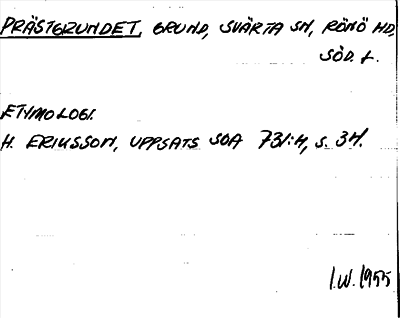 PRÄSTGRUNDET, GRUND, SVÄRTA SN, RÖNÖ HD,
SÖD. L.
ETYMOLOGI.
H. ERIKSSON, UPPSATS SOA 731:4, S. 34.
I.W. 1955